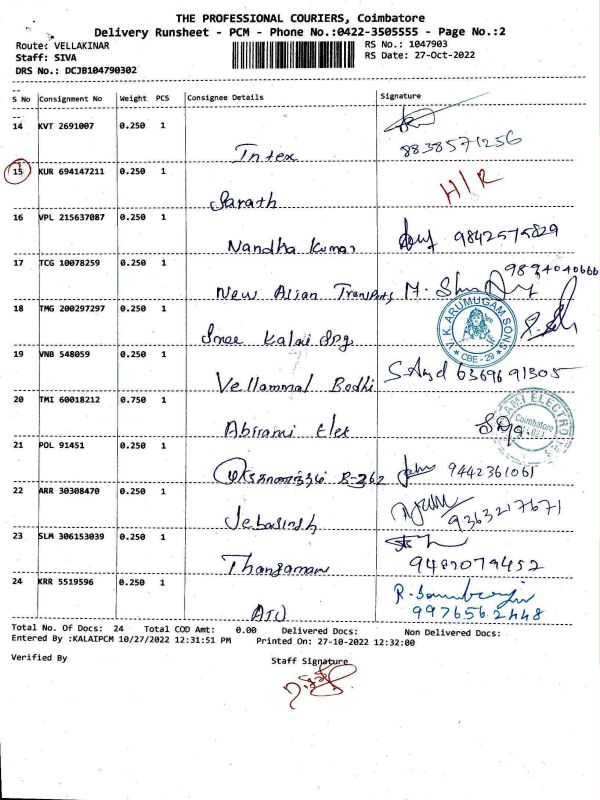 THE PROFESSIONAL COURIERS, Coimbatore
Delivery Runsheet - PCM - Phone No.:0422-3505555 - Page No.:2
Route: VELLAKINAR RS No.: 1047903
Staff: SIVA RS Date: 27-Oct-2022
DRS No.: DCJB104790302
S No Consignment No Weight PCS Consignee Details Signature
14 KVT 2691007 0.250 1
Intex 8838571256
15 KUR 694147211 0.250 1
Sarath H/R
16 VPL 215637087 0.250 1
Nandha Kumar 9842575829
17 TCG 10078259 0.250 1
New Asian Transports M.
18 TMG 200297297 0.250 1
Sree Kalai Spg
V.K. ARUMUGAM SONS
CBE - 29
19 VNB 548059 0.250 1
Vellammal Bodhi 6369691305
20 TMI 60018212 0.750 1
Abirami Elec
Coimbatore
21 POL 91451 0.250 1
B-362 9442361061
22 ARR 30308470 0.250 1
Jebasingh 9363217671
23 SLM 306153039 0.250 1
9489079452
24 KRR 5519596 0.250 1
R.
9976562448
Total No. Of Docs: 24 Total COD Amt: 0.00 Delivered Docs: Non Delivered Docs:
Entered By :KALAIPCM 10/27/2022 12:31:51 PM Printed On: 27-10-2022 12:32:00
Verified By Staff Signature